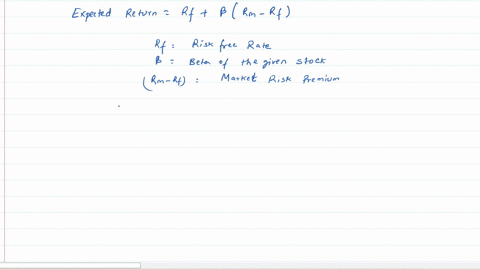 Expected Return = Rf + B (Rm - Rf)
Rf = Risk free Rate
B = Beta of the given stock
(Rm-Rf) = Market Risk Premium